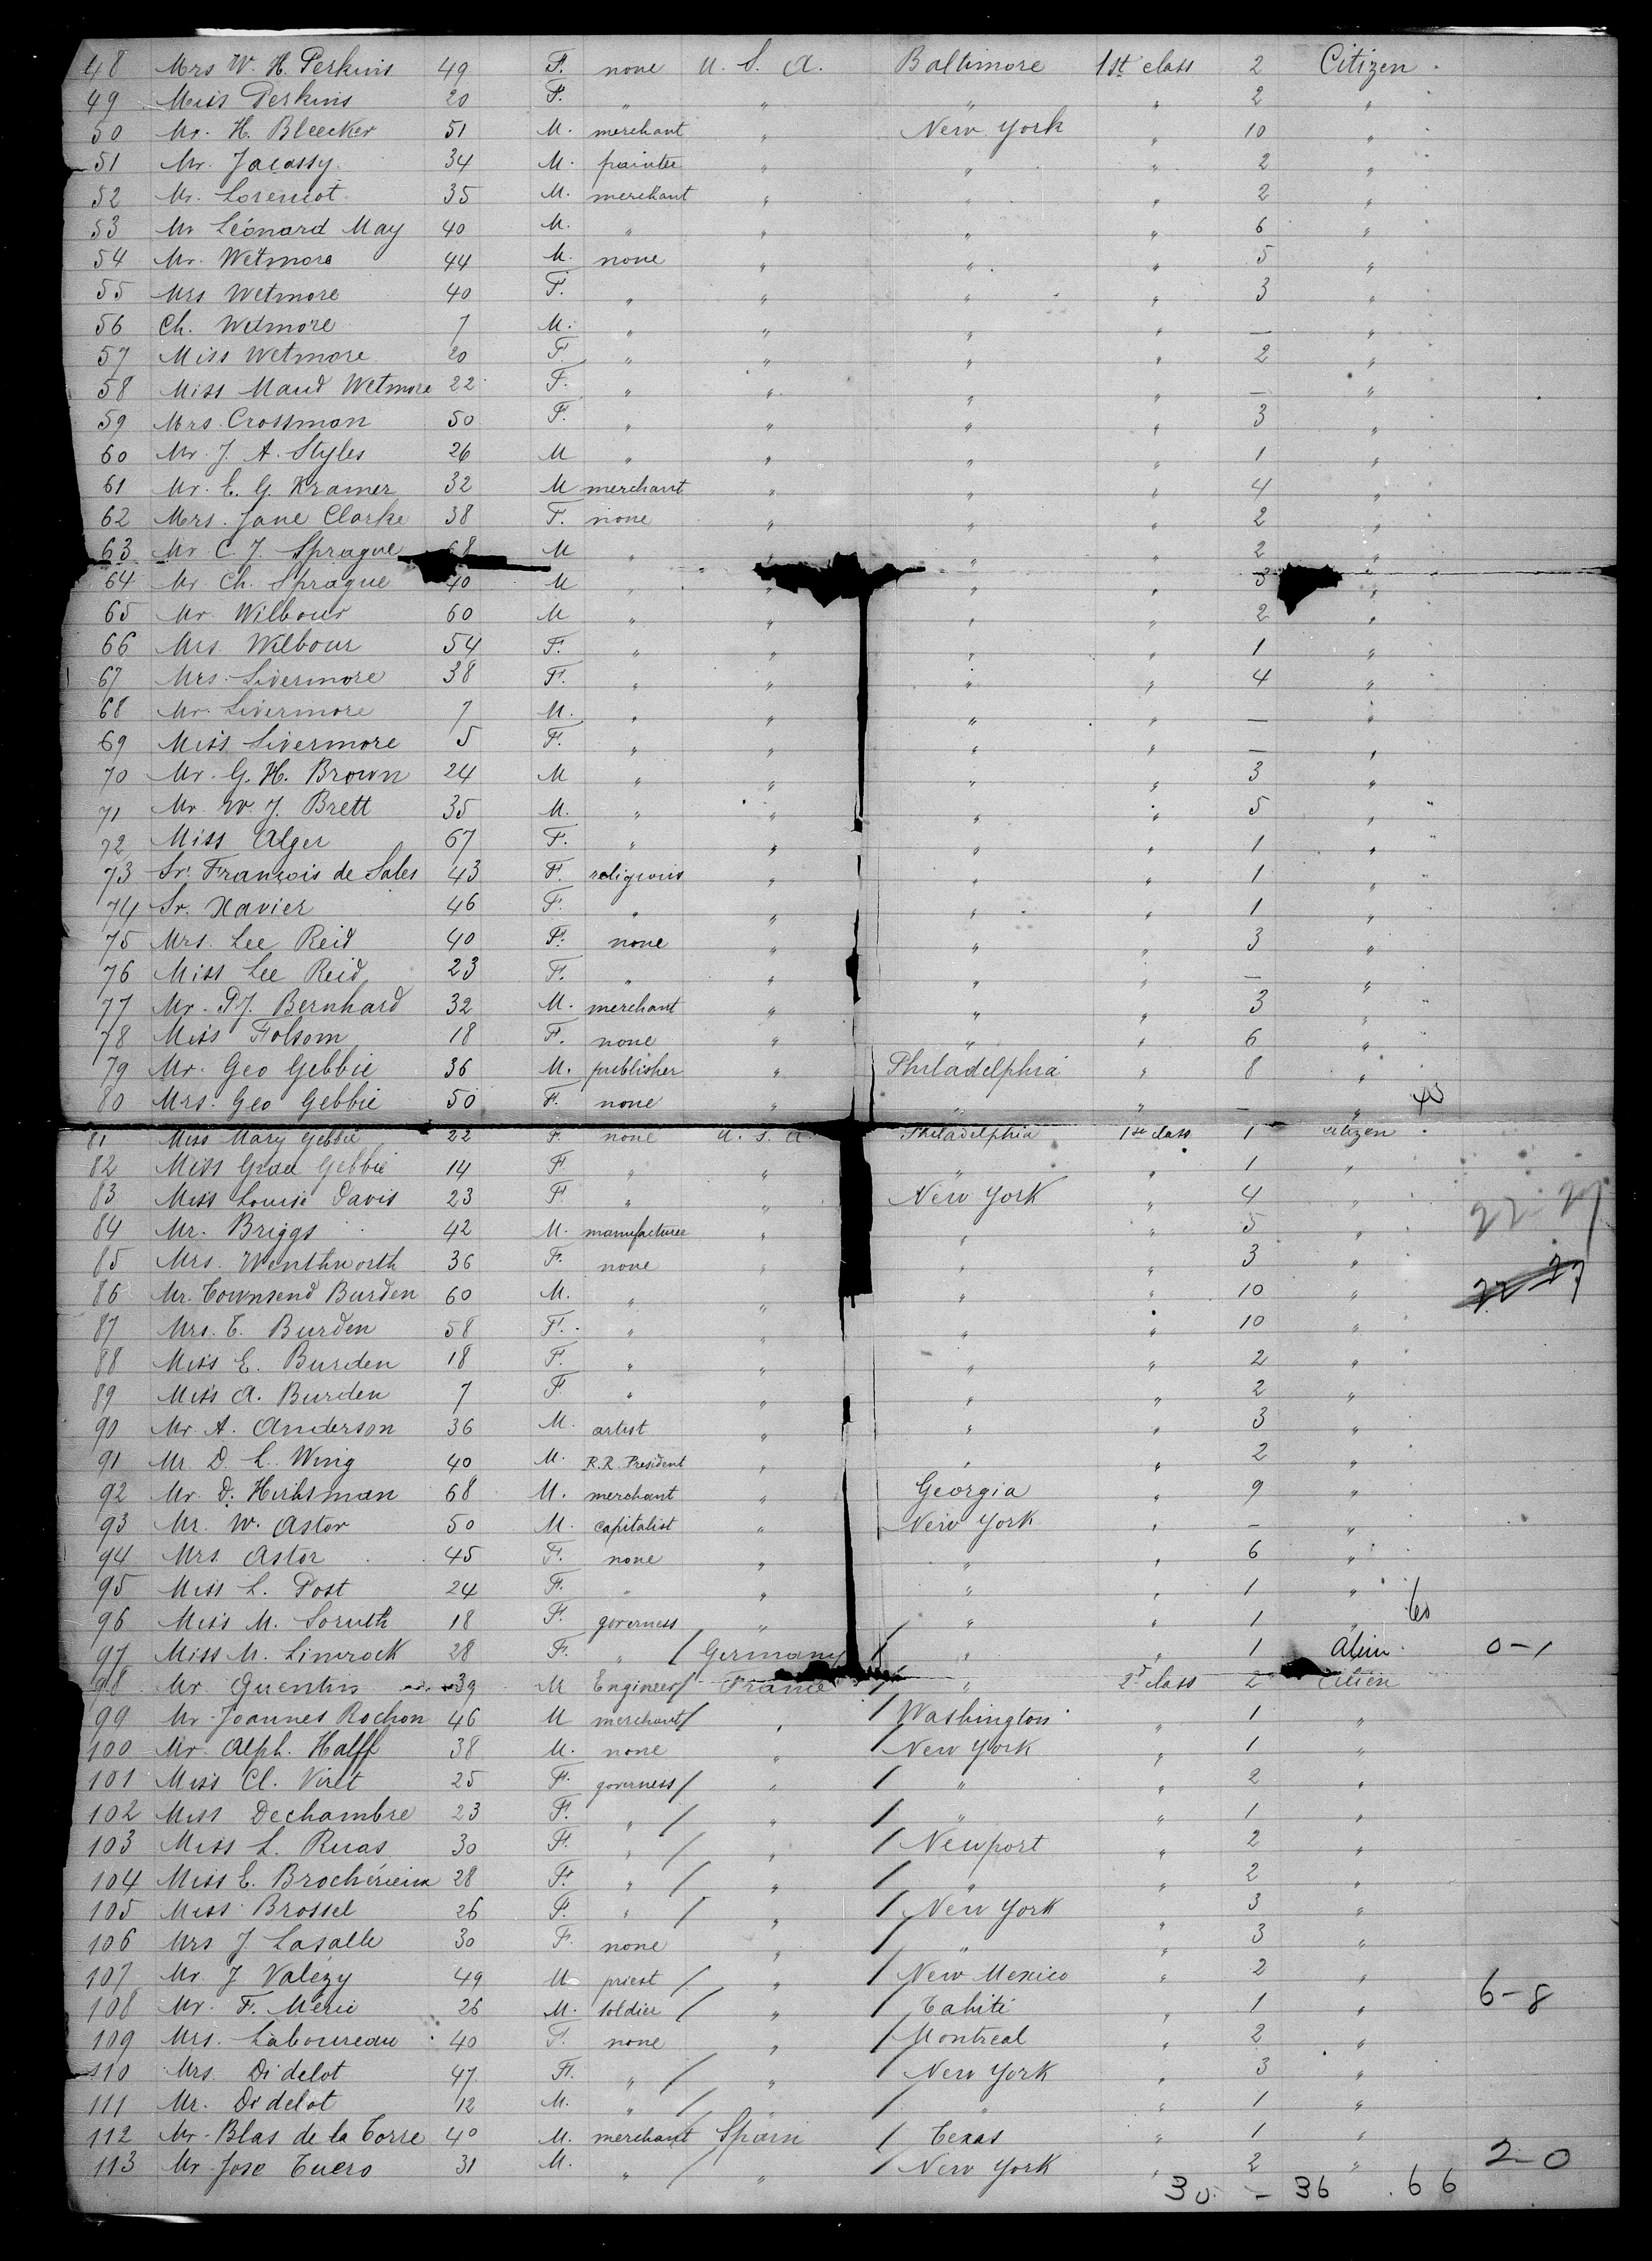 48 Mrs W. H. Perkins 49 F. none U. S. A. Baltimore 1st class 2 Citizen
49 Miss Perkins 20 F. " " " " 2 "
50 Mr. H. Bleecker 51 M. merchant " New York " 10 "
51 Mr. Jacassy 34 M. painter " " " 2 "
52 Mr. 35 M. merchant " " " 2 "
53 Mr Léonard May 40 M. " " " " 6 "
54 Mr. Wetmore 44 M. none " " " 5 "
55 Mrs Wetmore 40 F. " " " " 3 "
56 Ch. Wetmore 7 M. " " " " — "
57 Miss Wetmore 20 F. " " " " 2 "
58 Miss Maud Wetmore 22 F. " " " " — "
59 Mrs. Crossman 50 F. " " " " 3 "
60 Mr. J. A. Styles 26 M " " " " 1 "
61 Mr. E. G. Kramer 32 M merchant " " " 4 "
62 Mrs. Jane Clarke 38 F. none " " " 2 "
63 Mr C. J. Sprague 68 M " " " " 2 "
64 Mr Ch. Sprague 40 M " " " " 3 "
65 Mr. Wilbour 60 M " " " " 2 "
66 Mrs. Wilbour 54 F. " " " " 1 "
67 Mrs. Livermore 38 F. " " " " 4 "
68 Mr. Livermore 7 M. " " " " — "
69 Miss Livermore 5 F. " " " " — "
70 Mr. G. H. Brown 24 M " " " " 3 "
71 Mr. W. J. Brett 35 M. " " " " 5 "
72 Miss Alger 67 F. " " " " 1 "
73 Sr. François de Sales 43 F. religious " " " 1 "
74 Sr. Xavier 46 F. " " " " 1 "
75 Mrs. Lee Reid 40 F. none " " " 3 "
76 Miss Lee Reid 23 F. " " " " — "
77 Mr. P. J. Bernhard 32 M. merchant " " " 3 "
78 Miss Folsom 18 F. none " " " 6 "
79 Mr. Geo Gebbie 36 M. publisher " Philadelphia " 8 "
80 Mrs. Geo Gebbie 50 F. none " " " — "
81 Miss Mary Gebbie 22 F. none U. S. A. Philadelphia 1st class 1 citizen
82 Miss Grace Gebbie 14 F " " " " 1 "
83 Miss Louise Davis 23 F " " New York " 4 "
84 Mr. Briggs 42 M. manufacturer " " " 5 " 22 27
85 Mrs. Wenthworth 36 F. none " " " 3 "
86 Mr. Townsend Burden 60 M. " " " " 10 " 22 27
87 Mrs. T. Burden 58 F. " " " " 10 "
88 Miss E. Burden 18 F. " " " " 2 "
89 Miss A. Burden 7 F " " " " 2 "
90 Mr. A. Anderson 36 M. artist " " " 3 "
91 Mr D. L. Wing 40 M. R.R. President " " " 2 "
92 Mr. D. 68 M. merchant " Georgia " 9 "
93 Mr. W. Astor 50 M. capitalist " New York " — "
94 Mrs. Astor 45 F. none " " " 6 "
95 Miss L. Post 24 F. " " " " 1 "
96 Miss M. 18 F. governess " " " 1 " 60
97 Miss M. Limrock 28 F. " / Germany / " " 1 Alien 0-1
98 Mr. Quentin 39 M Engineer / France / " 2d class 2 alien
99 Mr. Joannes Rochon 46 M merchant / " / Washington " 1 "
100 Mr. Alph. Halff 38 M. none " / New York " 1 "
101 Miss Cl. Viret 25 F. governess / " / " " 2 "
102 Miss Dechambre 23 F. " / " / " " 1 "
103 Miss L. Ruas 30 F. " / " / Newport " 2 "
104 Miss E. 28 F. " / " / " " 2 "
105 Miss Brossel 26 F. " / " / New York " 3 "
106 Mrs J Lasalle 30 F. none " / " " 3 "
107 Mr. J Valézy 49 M priest / " / New Mexico " 2 "
108 Mr. F. Méric 26 M. soldier / " / Tahiti " 1 " 6-8
109 Mrs. Laboureau 40 F. none " / Montreal " 2 "
110 Mrs. Didelot 47 F. " / " / New York " 3 "
111 Mr. Didelot 12 M. " / " / " " 1 "
112 Mr. Blas de la Torre 40 M. merchant Spain / Texas " 1 "
113 Mr Jose Tuero 31 M. " / " / New York " 2 " 2-0
30 - 36 . 66